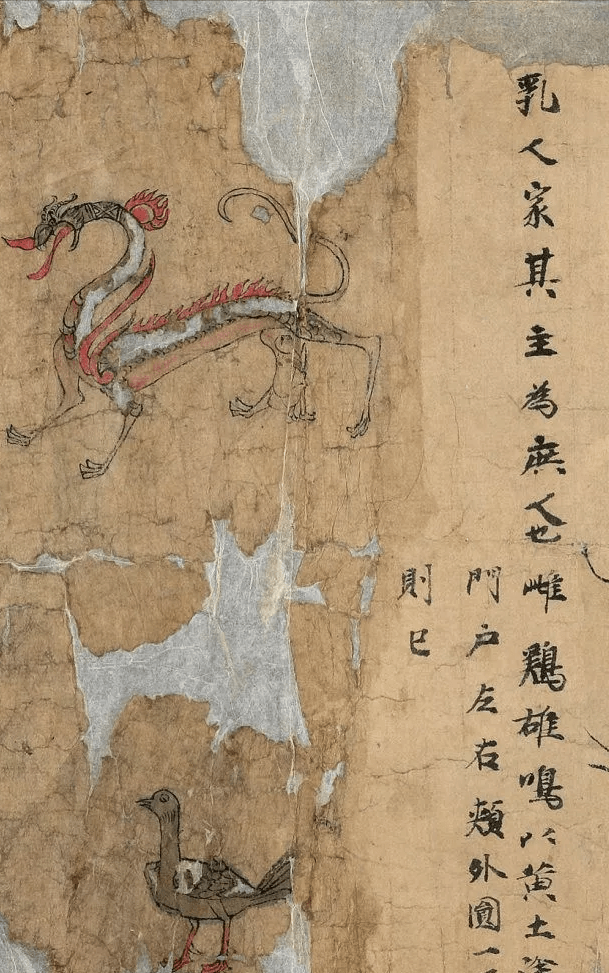 乳人家其主為庶人也雌鷄雄鳴以黃土塗
門户左右頰外圓一
則已